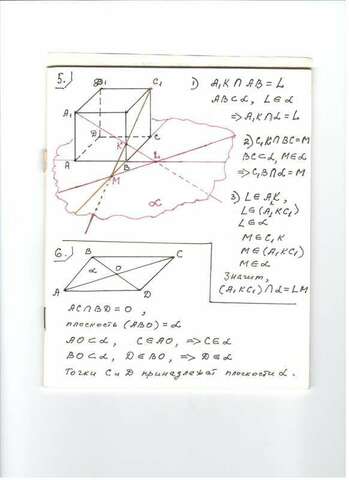 5.)
B₁ C₁
A₁
D C
K
A B L
M
α
1) A₁K ∩ AB = L
AB ⊂ α, L ∈ α
⇒ A₁K ∩ α = L
2) C₁K ∩ BC = M
BC ⊂ α, M ∈ α
⇒ C₁B ∩ α = M
3) L ∈ A₁K,
L ∈ (A₁KC₁)
L ∈ α
M ∈ C₁K
M ∈ (A₁KC₁)
M ∈ α
Значит,
(A₁KC₁) ∩ α = LM
6.)
B C
α O
A D
AC ∩ BD = O,
плоскость (ABO) = α
AO ⊂ α, C ∈ AO, ⇒ C ∈ α
BO ⊂ α, D ∈ BO, ⇒ D ∈ α
Точки C и D принадлежат плоскости α.